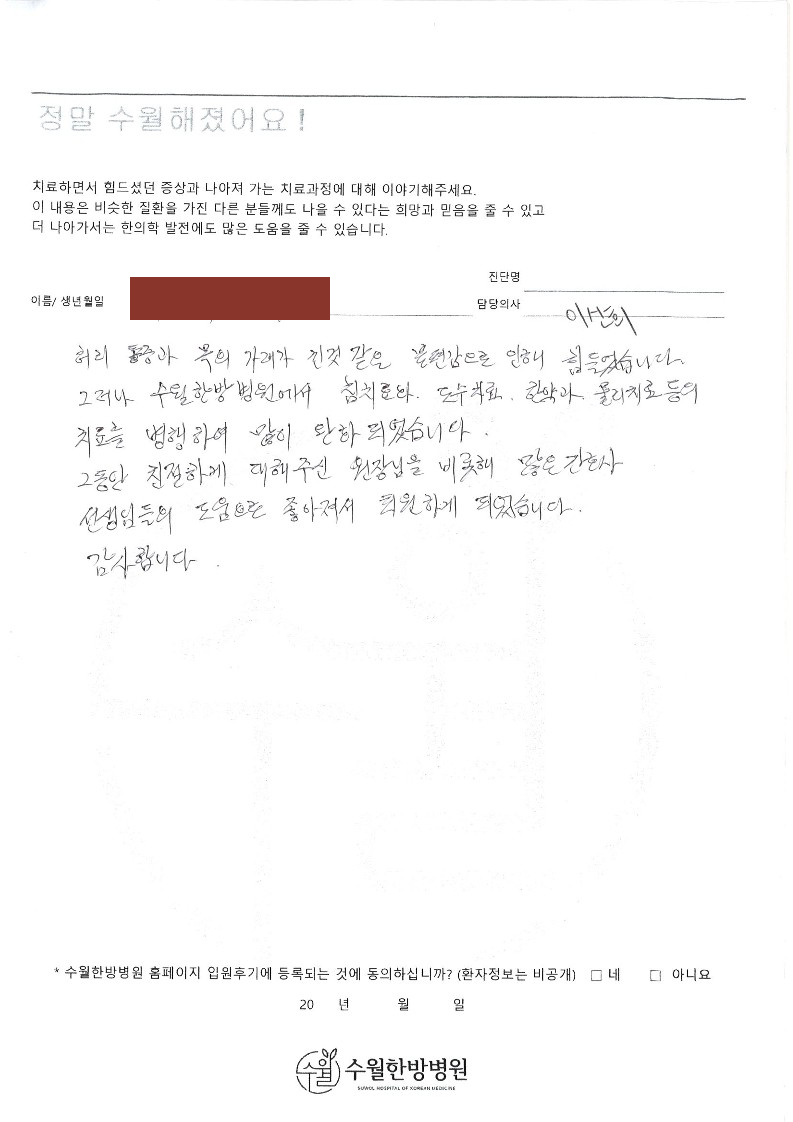 정말 수월해졌어요!
치료하면서 힘드셨던 증상과 나아져 가는 치료과정에 대해 이야기해주세요.
이 내용은 비슷한 질환을 가진 다른 분들께도 나을 수 있다는 희망과 믿음을 줄 수 있고
더 나아가서는 한의학 발전에도 많은 도움을 줄 수 있습니다.
진단명
이름/ 생년월일
담당의사 이선희
허리 통증과 목의 가래가 낀것 같은 불편감으로 인해 힘들었습니다.
그러나 수월한방병원에서 침치료와. 도수치료. 한약과. 물리치료등의
치료를 병행하여 많이 완화 되었습니다.
그동안 친절하게 대해주신 원장님을 비롯해 많은 간호사
선생님들의 도움으로 좋아져서 퇴원하게 되었습니다.
감사합니다.
* 수월한방병원 홈페이지 입원후기에 등록되는 것에 동의하십니까? (환자정보는 비공개) □ 네 □ 아니요
20 년 월 일
수월 수월한방병원
SUWOL HOSPITAL OF KOREAN MEDICINE